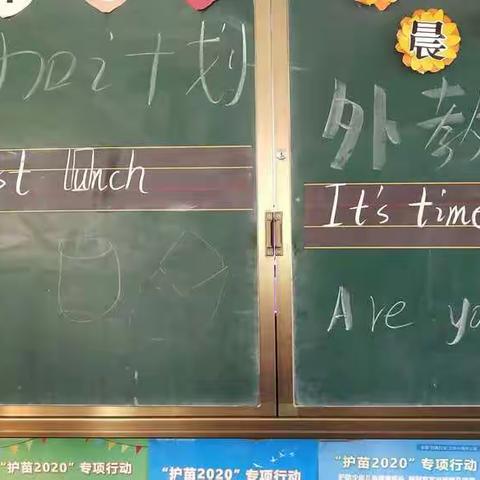 晨
加计划
st lunch
外教
It's time
Are yo
“护苗2020”专项行动
“护苗2020”专项行动
“护苗2020”专项行动